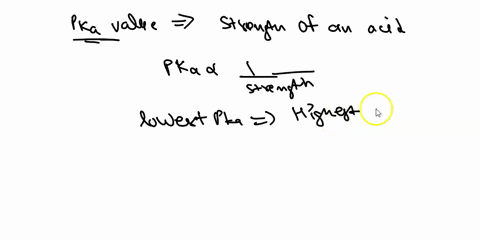 PKa value => Strength of an acid
PKa ∝ 1 / strength
lowest Pka => Highest